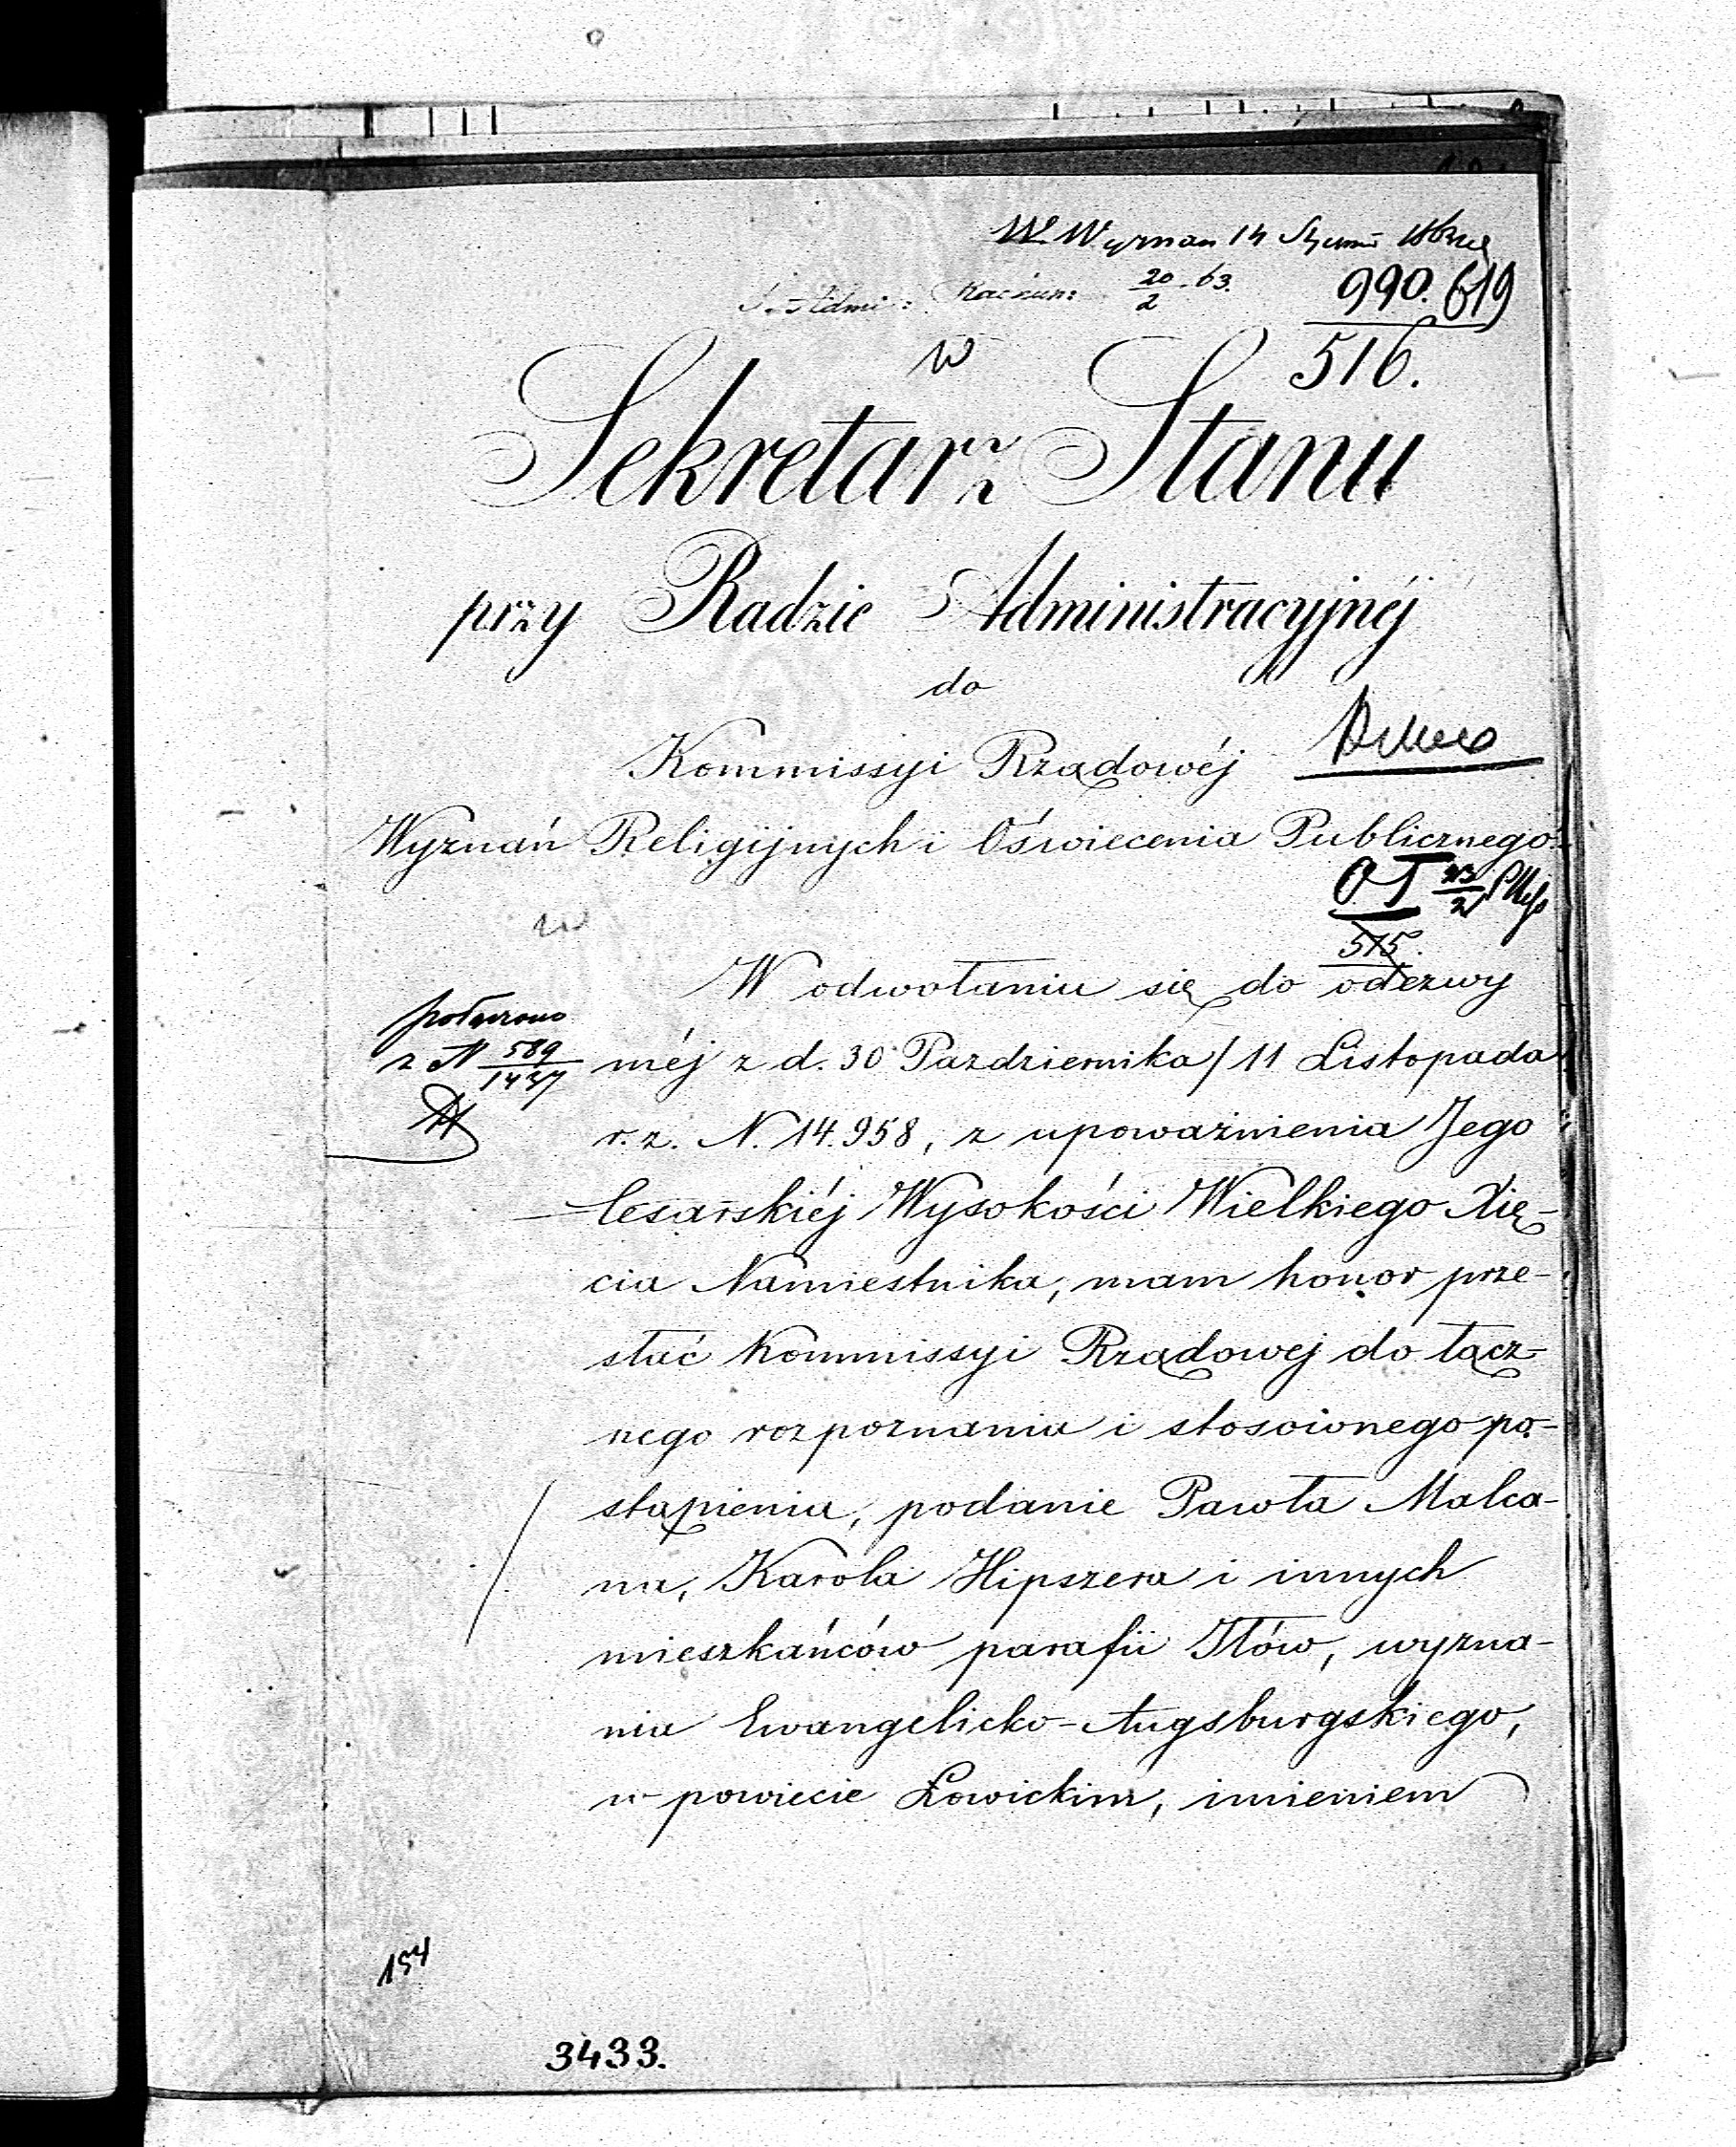 W. Wyznań 14
20/2 .63. 990. 619
w 516.
Sekretarz Stanu
przy Radzie Administracyjnéj
do
Kommissyi Rządowéj
Wyznań Religijnych i Oświecenia Publicznego.
OT 23/2
w
515.
W odwołaniu się do odezwy
połączono
z N 589/1437
méj z d. 30 Pazdziernika / 11 Listopada
r. z. N. 14.958, z upoważnienia Jego
Cesarskiéj Wysokości Wielkiego Xię-
cia Namiestnika, mam honor prze-
słać Kommissyi Rządowej do łącz-
nego rozpoznania i stosownego po-
stąpienia, podanie Pawła Malca-
na, Karola Hipszera i innych
mieszkańców parafii Iłów, wyzna-
nia Ewangelicko-Augsburgskiego,
w powiecie Łowickim, imieniem
154
3433.